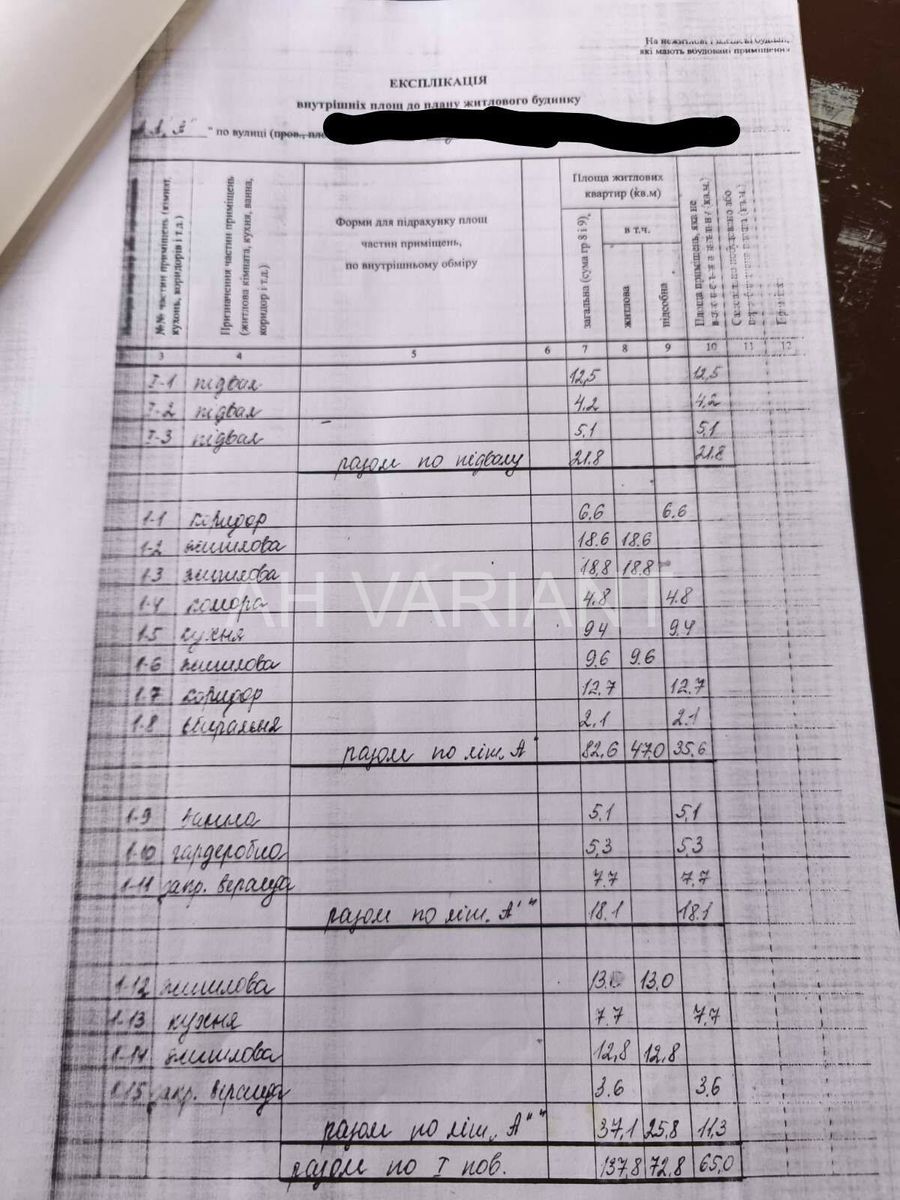 На нежитлові і житлові будинк.
які мають вбудовані приміщення
ЕКСПЛІКАЦІЯ
внутрішніх площ до плану житлового будинку
" по вулиці (пров., пло
№№ частин приміщень (кімнат, кухонь, коридорів і т.д.)
Призначення частин приміщень (житлова кімната, кухня, ванна, коридор і т.д.)
Форми для підрахунку площ
частин приміщень,
по внутрішньому обміру
Площа житлових
квартир (кв.м)
загальна (сума гр 8 і 9),
в т.ч.
житлова
підсобна
Площа приміщень, яка не
3 4 5 6 7 8 9 10 11 12
I-1 підвал 12,5 12,5
I-2 підвал 4.2 4,2
I-3 підвал 5,1 5,1
разом по підвалу 21.8 21.8
1-1 коридор 6.6 6.6
1-2 житлова 18.6 18.6
1-3 житлова 18,8 18.8
1-4 комора 4.8 4.8
1-5 кухня 9.4 9.4
1-6 житлова 9.6 9.6
1-7 коридор 12.7 12.7
1-8 вбиральня 2.1 2.1
разом по літ. А" 82.6 47.0 35.6
1-9 ванна 5.1 5,1
1-10 гардеробна 5,3 5.3
1-11 закр. веранда 7.7 7.7
разом по літ. А' " 18.1 18.1
1-12 житлова 13.0 13,0
1-13 кухня 7.7 7,7
1-14 житлова 12,8 12,8
1-15 закр. веранда 3.6 3.6
разом по літ. А" " 37,1 25.8 11,3
разом по I пов. 137,8 72,8 65,0
AH VARIANT